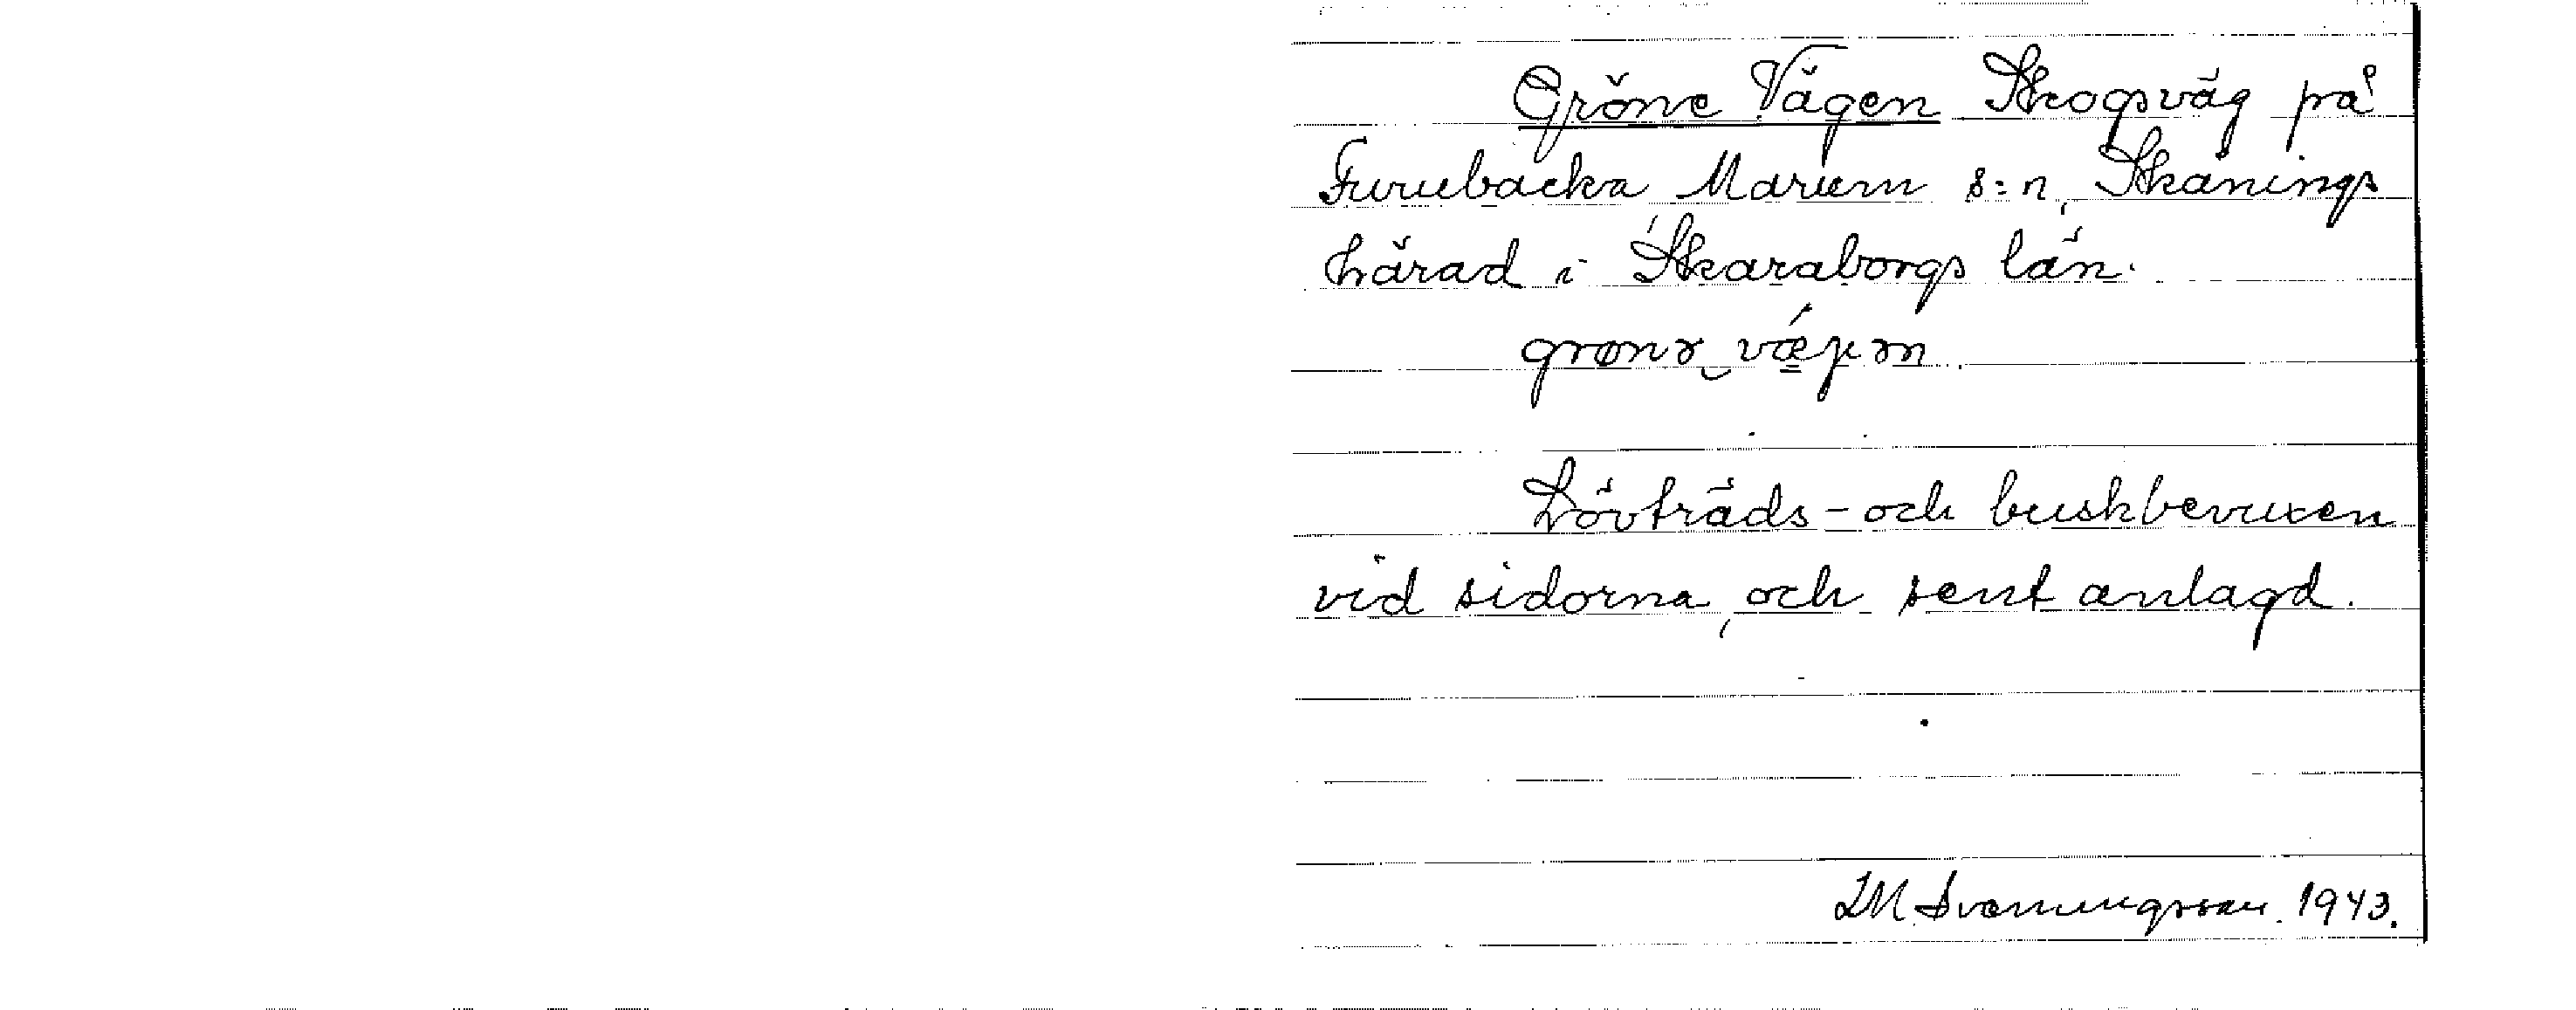 Gröne Vägen Skogsväg på
Furubacka Marum s:n, Skånings
härad i Skaraborgs län.
Lövträds- och buskbevuxen
vid sidorna, och sent anlagd.
IM Svenningsson. 1943.